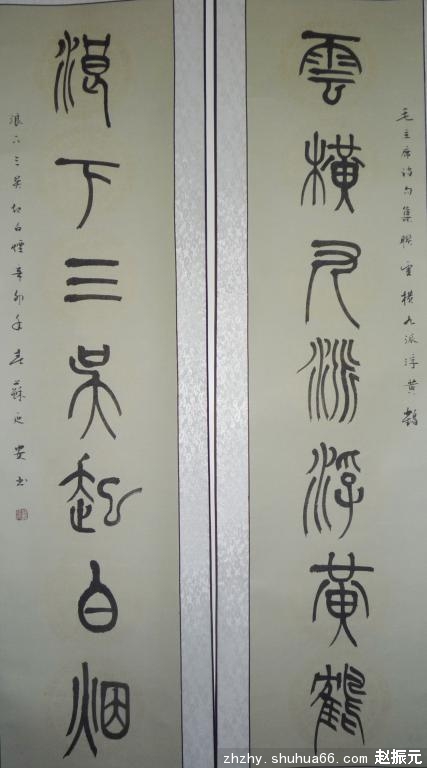 毛主席詩句集聯雲橫九派浮黃鶴
雲橫九派浮黃鶴
浪下三吳起白烟
浪下三吳起白煙辛卯年春蘇延安书
zhzhy.shuhua66.com 赵振元